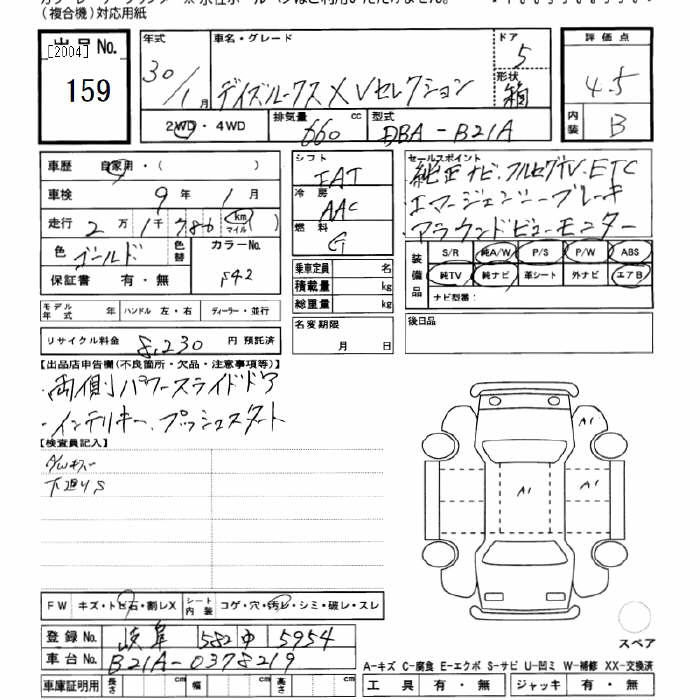 (複合機)対応用紙
出品No.
[2004]
159
年式
30/1月
車名・グレード
デイズルークス X Vセレクション
ドア
5
形状
箱
評価点
4.5
内装
B
2WD・4WD
排気量
660 cc
型式
DBA-B21A
車歴 自家用・( )
車検 9年 1月
走行 2万1千786 km マイル
色 ゴールド 色替 カラーNo. 542
保証書 有・無
シフト
IAT
冷房
AAC
燃料
G
乗車定員 名
積載量 kg
総重量 kg
セールスポイント
・純正ナビ、フルセグTV、ETC
・エマージェンシーブレーキ
・アラウンドビューモニター
装備品
S/R 純A/W P/S P/W ABS
純TV 純ナビ 革シート 外ナビ エアB
ナビ型番:
モデル年式 年 ハンドル 左・右 ディーラー・並行
名変期限
月 日
後日品
リサイクル料金 8,230 円 預託済
【出品店申告欄(不良箇所・欠品・注意事項等)】
・両側パワースライドドア
・インテリキー、プッシュスタート
【検査員記入】
下廻りS
A1
A1
A1
A1
FW キズ・トビ石・割レX シート内装 コゲ・穴・汚レ・シミ・破レ・スレ
登録No. 岐阜 582 ゆ 5954
車台No. B21A-0378219
車庫証明用 長さ cm 幅 cm 高さ cm
スペア
A-キズ C-腐食 E-エクボ S-サビ U-凹ミ W-補修 XX-交換済
工具 有・無 ジャッキ 有・無